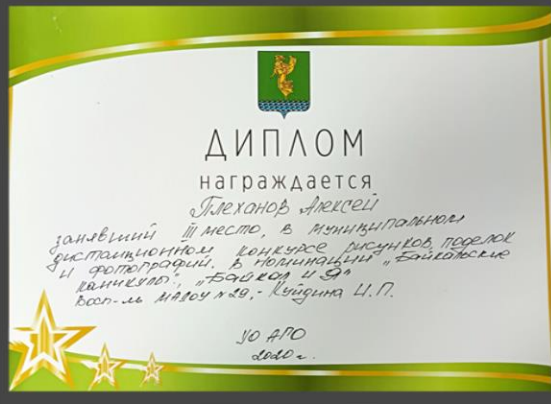 ДИПЛОМ
награждается
Плеханов Алексей
занявший III место, в муниципальном
дистанционном конкурсе рисунков, поделок
и фотографий, в номинации „Байкальские
каникулы", „Байкал и Я"
Восп-ль МАДОУ №29,- Куйдина И.П.
УО АГО
2020г.